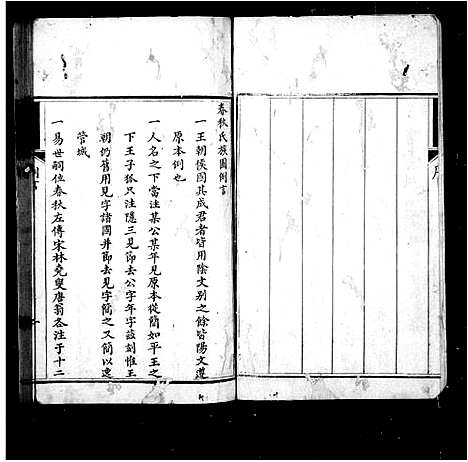 春秋氏族圖例言
一王朝侯國其成君者皆用陰文別之餘皆陽文遵
原本例也
一人名之下當注某公某年見原本從簡如平王之
下王子狐只注隱三見節去公字年字茲刻惟王
朝仍舊用見字諸國并節去見字簡之又簡以逸
管城
一易世祠位春秋左傳宋林堯叟唐翁各注于十二